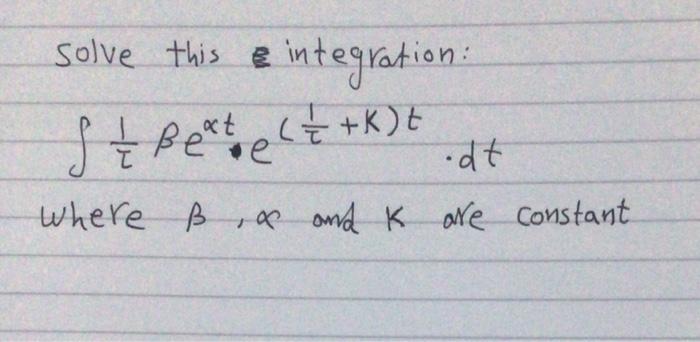 solve this integration:
∫ 1/τ βe^αt • e^(1/τ + K)t · dt
where β , α and K are constant